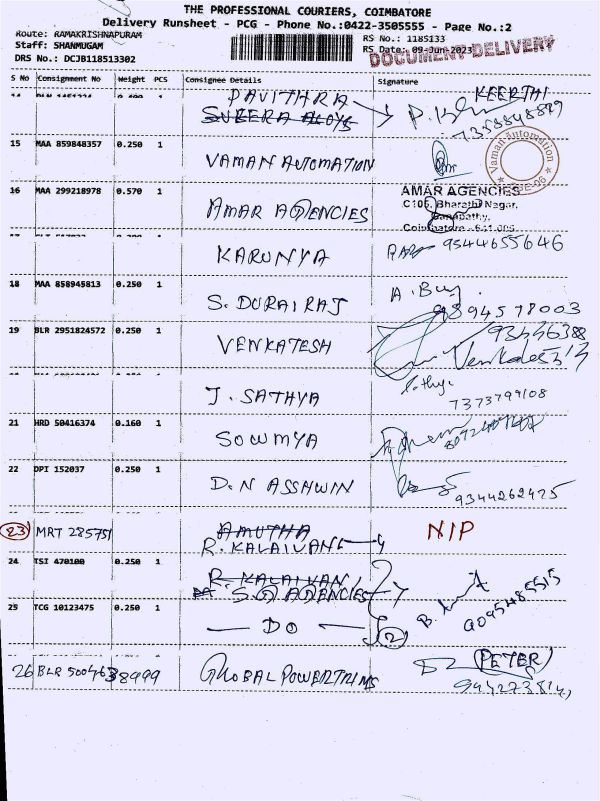 THE PROFESSIONAL COURIERS, COIMBATORE
Delivery Runsheet - PCG - Phone No.:0422-3505555 - Page No.:2
Route: RAMAKRISHNAPURAM
RS No.: 1185133
Staff: SHANMUGAM
RS Date: 09-Jun-2023
DOCUMENT DELIVERY
DRS No.: DCJB118513302
S No Consignment No Weight PCS Consignee Details Signature
PAVITHRA KEERTHI
SUBERA ALOYS
15 MAA 859848357 0.250 1 VAMAN AUTOMATION
Vaman Automation
16 MAA 299218978 0.570 1 AMAR AGENCIES
AMAR AGENCIES
C106, Bharathi Nagar,
Ganapathy,
Coimbatore - 641 006
KARUNYA 9544655646
18 MAA 858945813 0.250 1 S. DURAI RAJ
9894578003
19 BLR 2951824572 0.250 1 VENKATESH
Venkatesh
J. SATHYA
7373799108
21 HRD 50416374 0.160 1 SOWMYA
22 DPI 152037 0.250 1 D.N ASSHWIN
9344262425
23 MRT 285751 AMUTHA NIP
R. KALAIVANI
24 TSI 470100 0.250 1 R. KALAIVANI
S.G AGENCIES
25 TCG 10123475 0.250 1 — DO — 2
26 BLR 5004638999 GLOBAL POWERTRIMS (PETER)